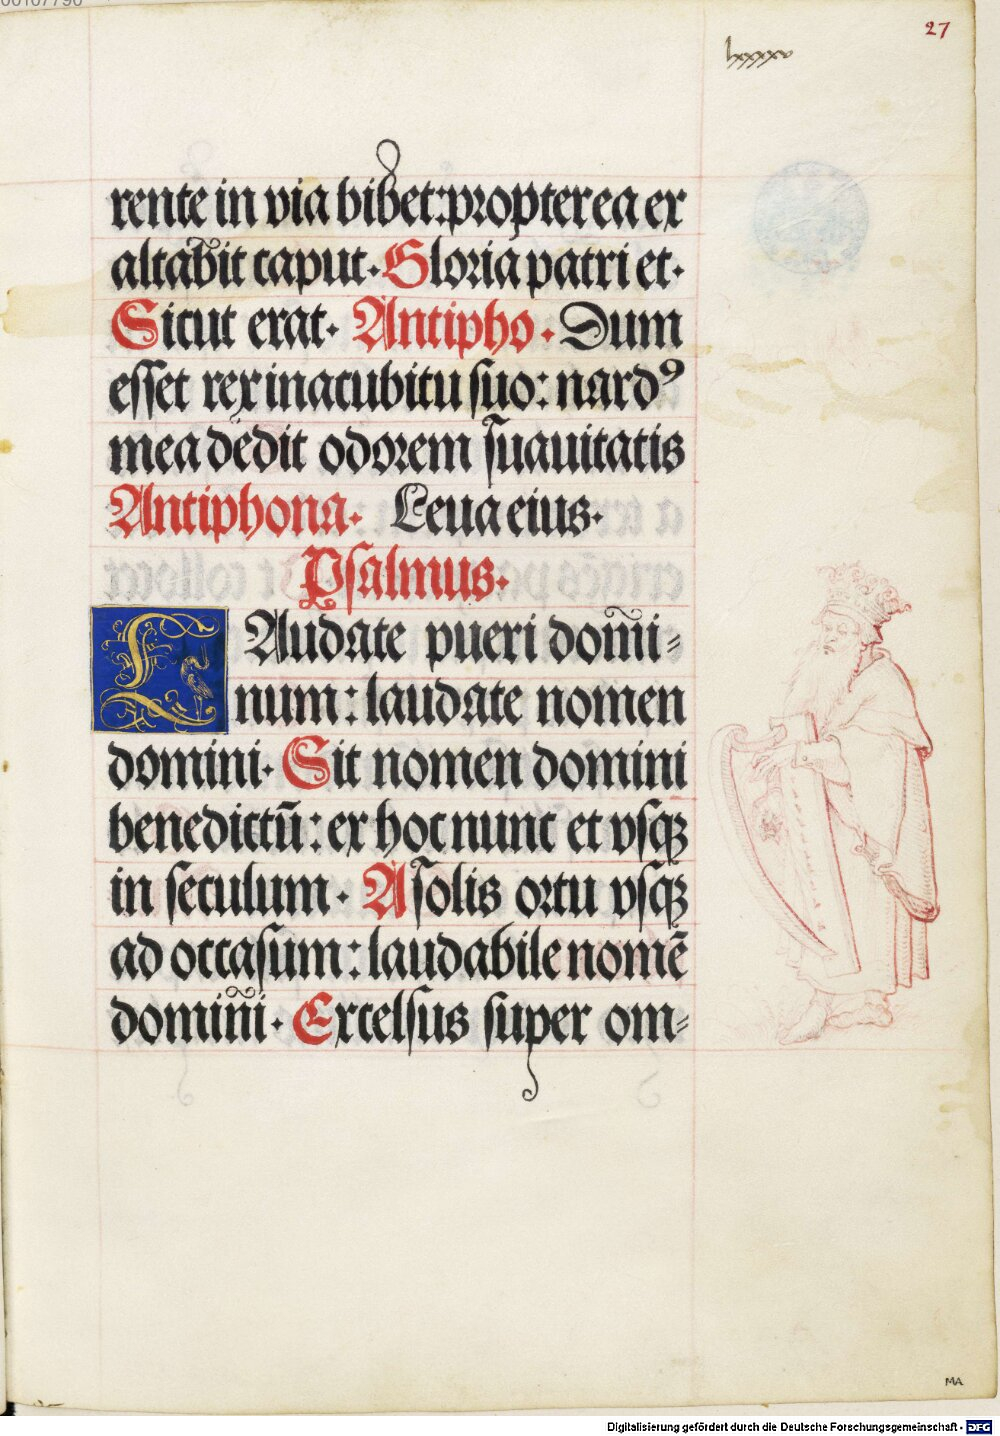 00107790
27
lxxxxv
rente in via bibet: propterea ex
altabit caput. Gloria patri et.
Sicut erat. Antipho. Dum
esset rex in acubitu suo: nardꝰ
mea dedit odorem suauitatis
Antiphona. Leua eius.
Psalmus.
LAudate pueri domi=
num: laudate nomen
domini. Sit nomen domini
benedictū: ex hoc nunc et vsqꝫ
in seculum. A solis ortu vsqꝫ
ad occasum: laudabile nomē
domini. Excelsus super om=
MA
Digitalisierung gefördert durch die Deutsche Forschungsgemeinschaft - DFG